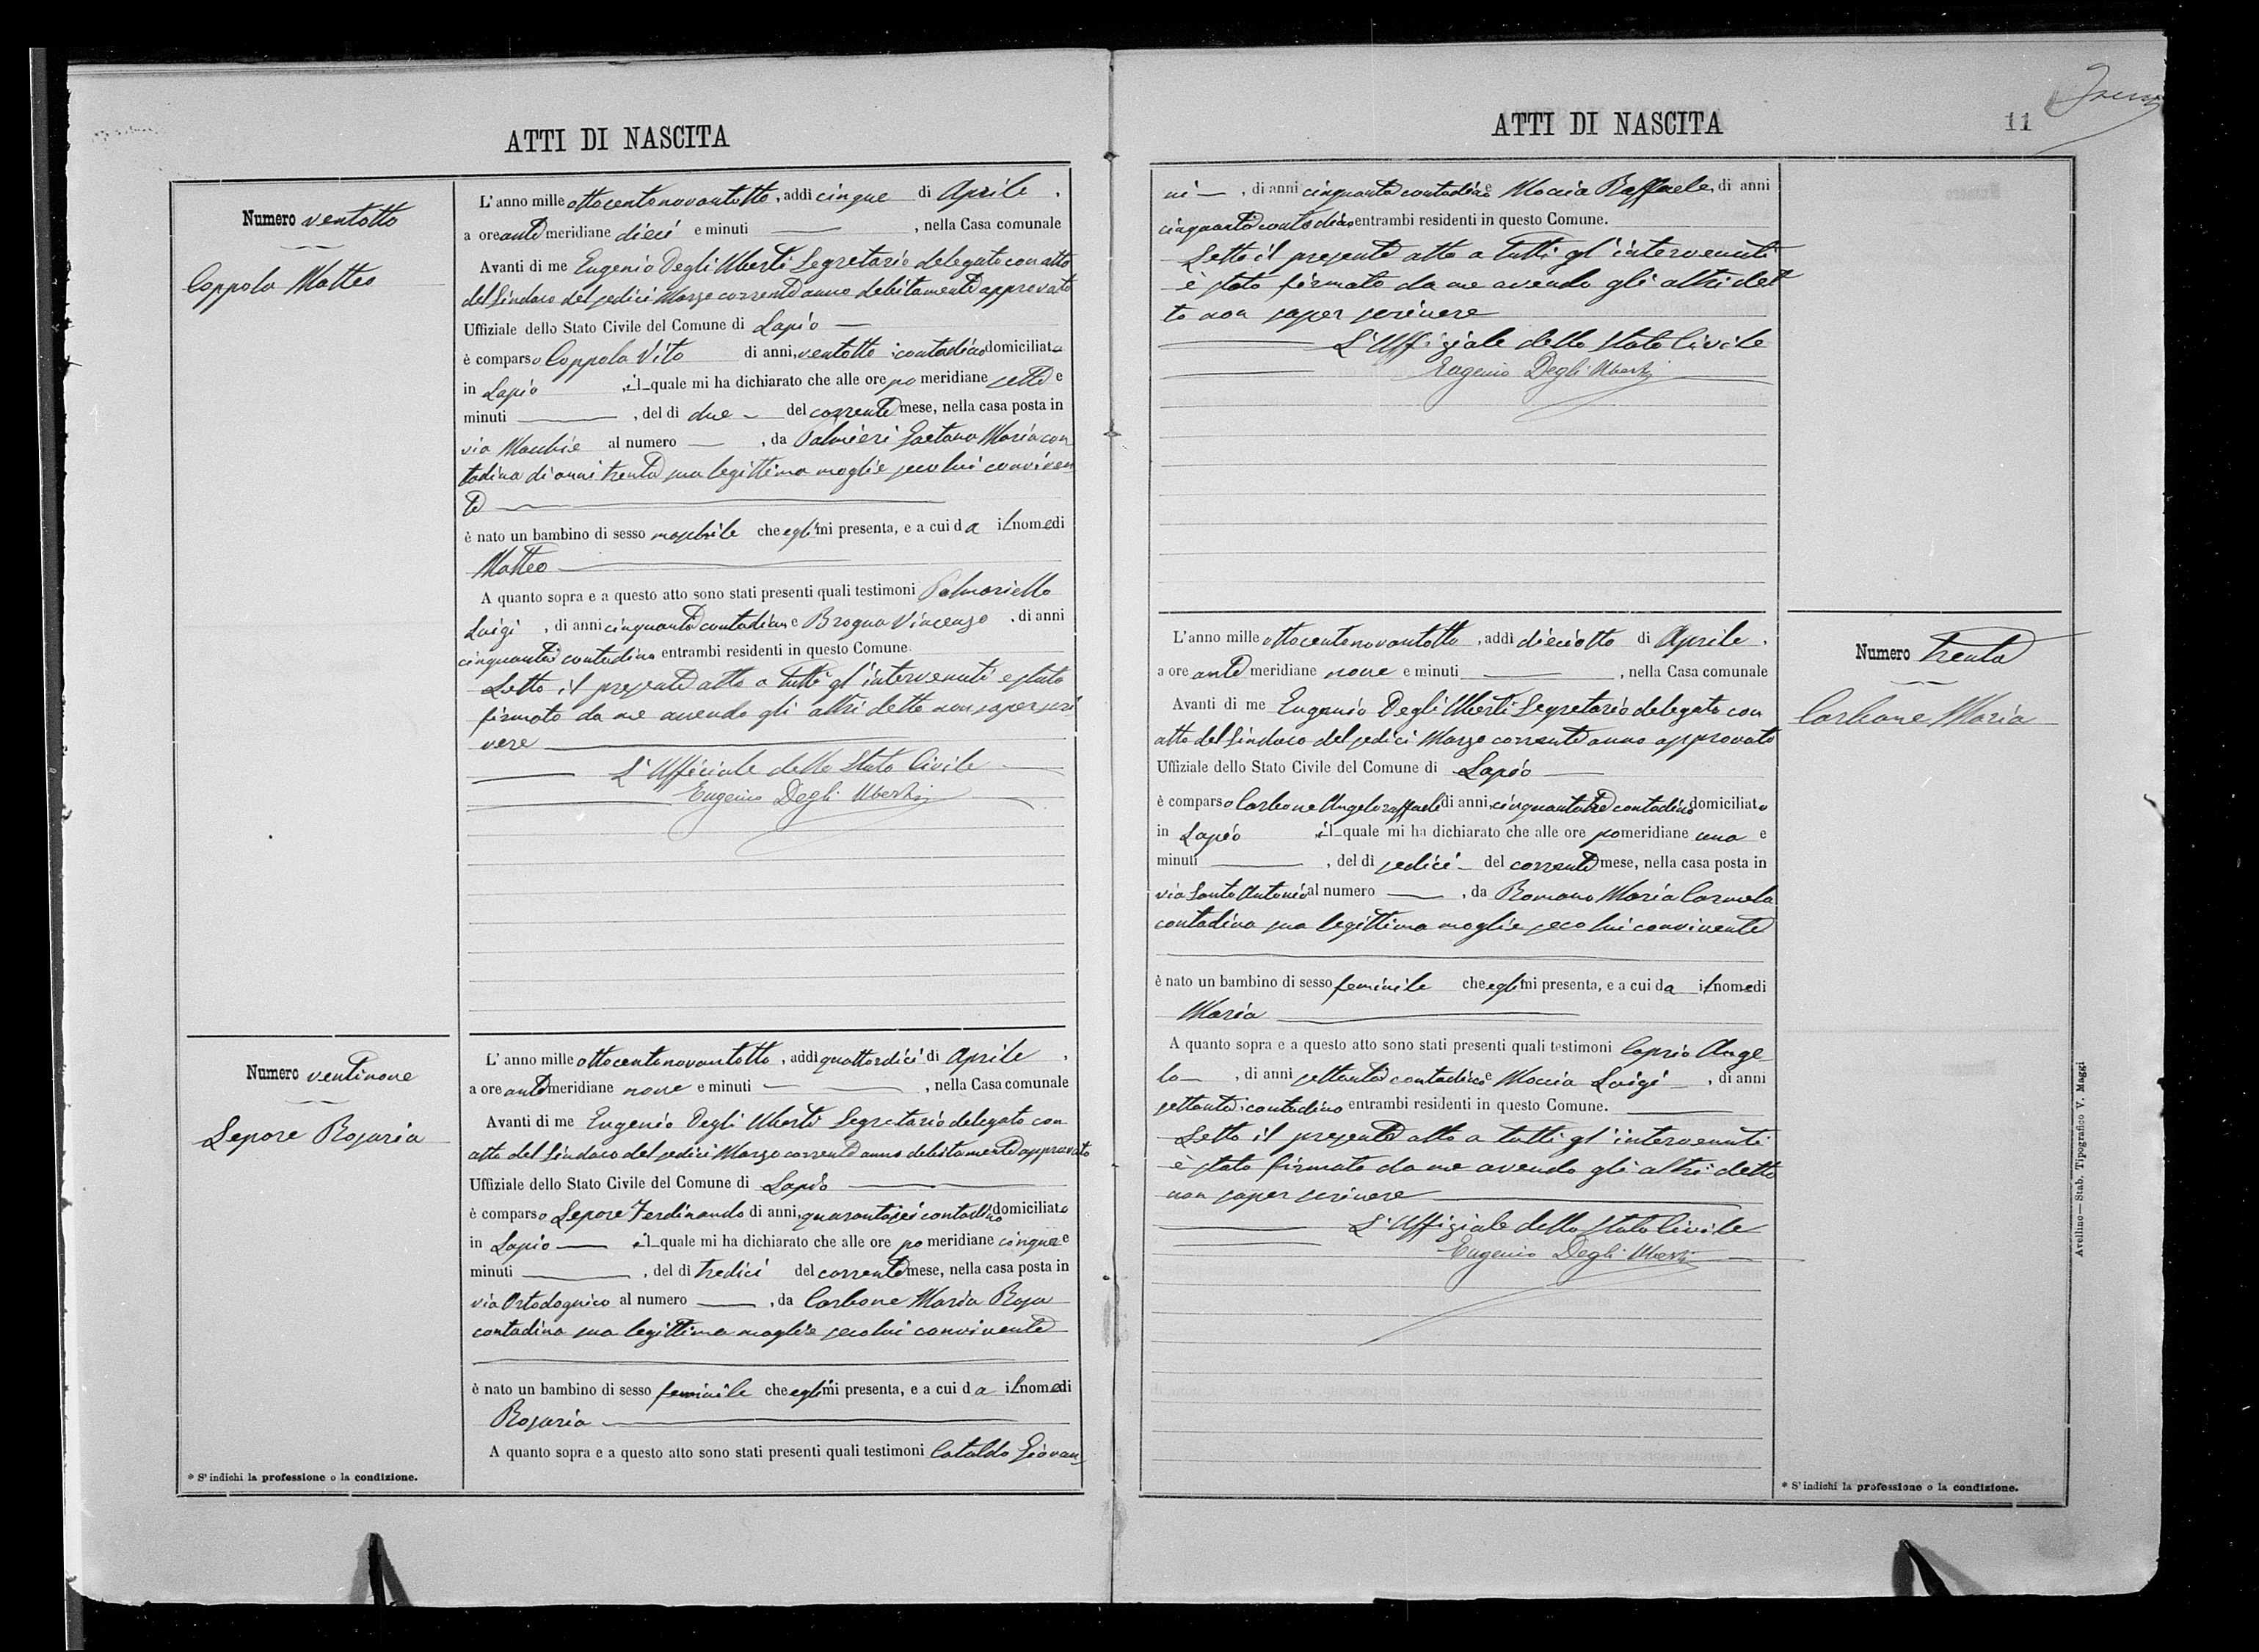 ATTI DI NASCITA
Numero ventotto
Coppola Matteo
L'anno mille ottocentonovantotto, addì cinque di Aprile,
a ore antemeridiane dieci e minuti — , nella Casa comunale
Avanti di me Eugenio Degli Uberti Segretario delegato con atto
del Sindaco del sedici Marzo corrente anno debitamente approvato
Uffiziale dello Stato Civile del Comune di Lapio —
è comparso Coppola Vito di anni, ventotto contadino domiciliato
in Lapio , il quale mi ha dichiarato che alle ore pomeridiane sette e
minuti — , del dì due — del corrente mese, nella casa posta in
via Macchie al numero — , da Palmieri Gaetana Maria con
tadina di anni trenta sua legittima moglie seco lui conviven
te —
è nato un bambino di sesso maschile che egli mi presenta, e a cui dà il nome di
Matteo —
A quanto sopra e a questo atto sono stati presenti quali testimoni Palmariello
Luigi , di anni cinquanta contadino e Brogna Vincenzo , di anni
cinquanta contadino entrambi residenti in questo Comune.
Letto il presente atto a tutti gl'intervenuti è stato
firmato da me avendo gli altri detto non saper scri
vere —
L'Ufficiale dello Stato Civile
Eugenio Degli Uberti
Numero ventinove
Lepore Rosaria
L'anno mille ottocentonovantotto, addì quattordici di Aprile,
a ore antemeridiane nove e minuti — , nella Casa comunale
Avanti di me Eugenio Degli Uberti Segretario delegato con
atto del Sindaco del sedici Marzo corrente anno debitamente approvato
Uffiziale dello Stato Civile del Comune di Lapio —
è comparso Lepore Ferdinando di anni, quarantasei contadino domiciliato
in Lapio — il quale mi ha dichiarato che alle ore pomeridiane cinque e
minuti — , del dì tredici del corrente mese, nella casa posta in
via Ortodognico al numero — , da Carbone Maria Rosa
contadina sua legittima moglie seco lui convivente
è nato un bambino di sesso feminile che egli mi presenta, e a cui dà il nome di
Rosaria —
A quanto sopra e a questo atto sono stati presenti quali testimoni Cataldo Giovan
* S'indichi la professione o la condizione.
ATTI DI NASCITA
11
ni — , di anni cinquanta contadino e Moccia Raffaele, di anni
cinquanta contadino entrambi residenti in questo Comune.
Letto il presente atto a tutti gl'intervenuti
è stato firmato da me avendo gli altri det
to non saper scrivere
L'Uffiziale dello Stato Civile
Eugenio Degli Uberti
Numero trenta
Carbone Maria
L'anno mille ottocentonovantotto, addì dieciotto di Aprile,
a ore antemeridiane nove e minuti — , nella Casa comunale
Avanti di me Eugenio Degli Uberti Segretario delegato con
atto del Sindaco del sedici Marzo corrente anno approvato
Uffiziale dello Stato Civile del Comune di Lapio —
è comparso Carbone Angeloraffaele di anni, cinquantatre contadino domiciliato
in Lapio il quale mi ha dichiarato che alle ore pomeridiane una e
minuti — , del dì sedici — del corrente mese, nella casa posta in
via Santo Antonio al numero — , da Romano Maria Carmela
contadina sua legittima moglie seco lui convivente
è nato un bambino di sesso feminile che egli mi presenta, e a cui dà il nome di
Maria —
A quanto sopra e a questo atto sono stati presenti quali testimoni Caprio Ange
lo — , di anni settanta contadino e Moccia Luigi — , di anni
settanta contadino entrambi residenti in questo Comune. —
Letto il presente atto a tutti gl'intervenuti
è stato firmato da me avendo gli altri detto
non saper scrivere —
L'Uffiziale dello Stato Civile
Eugenio Degli Uberti
* S'indichi la professione o la condizione.
Avellino — Stab. Tipografico V. Maggi